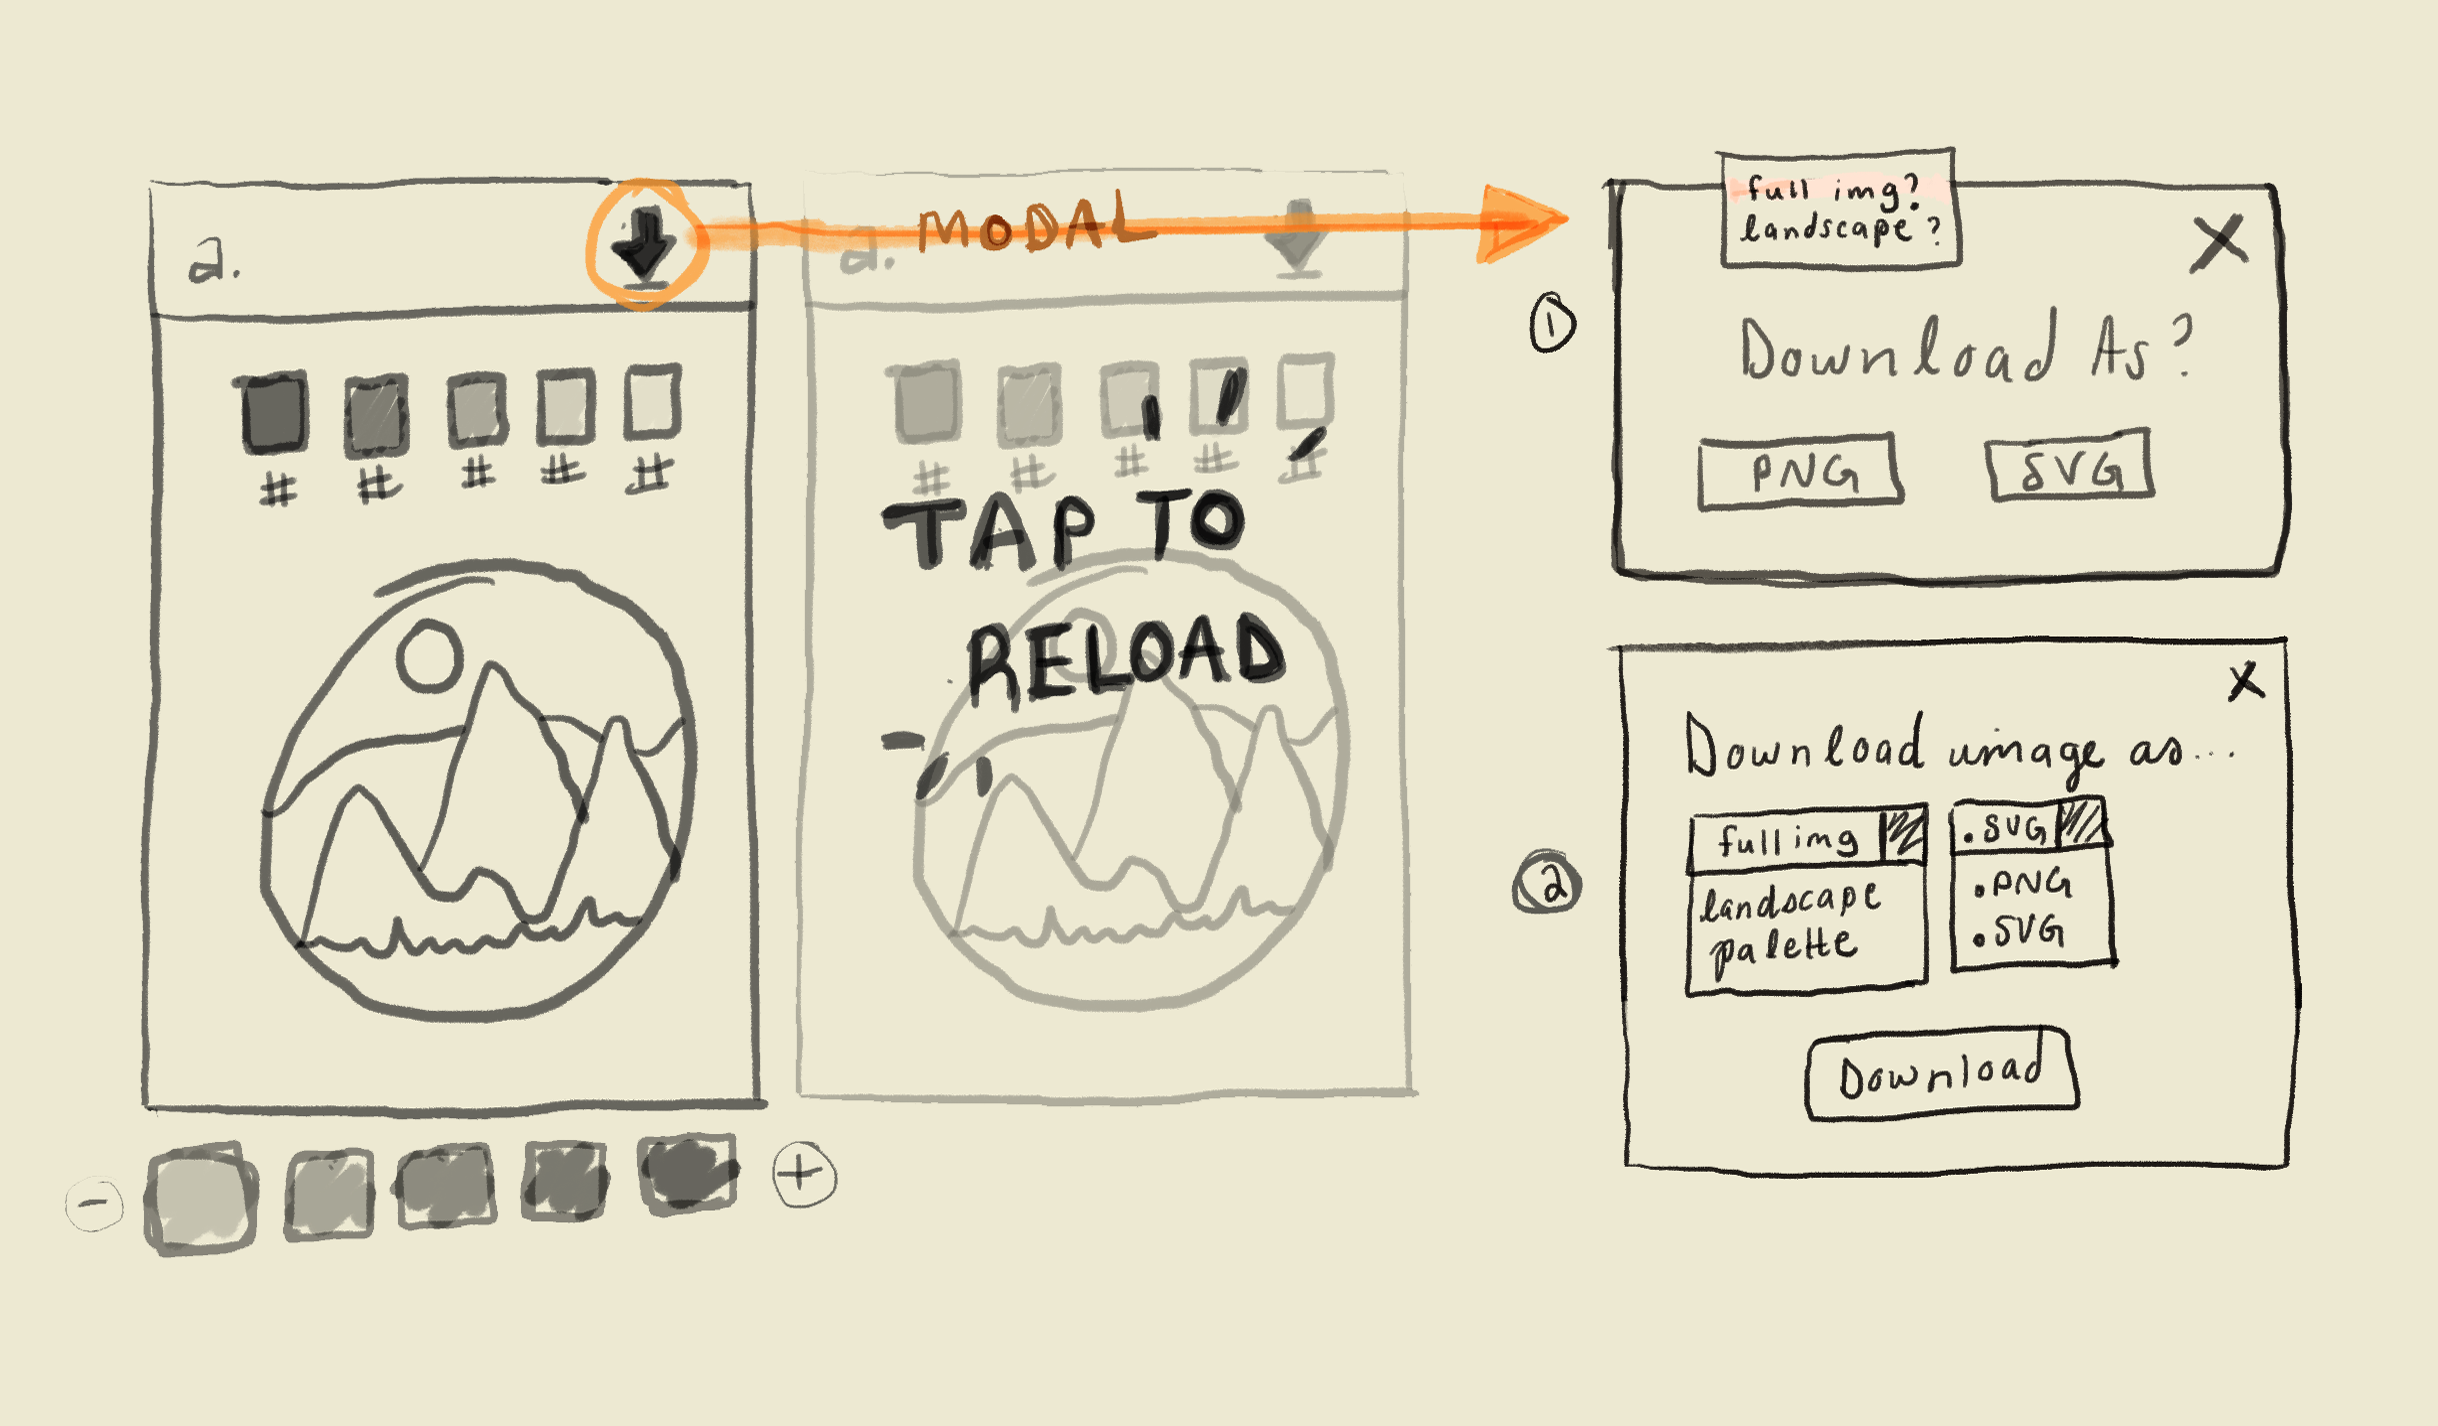 a.
# # # # #
- +
MODAL
a.
# # # # #
TAP TO
RELOAD
1
full img?
landscape?
X
Download As?
PNG SVG
2
X
Download image as...
full img
landscape
palette
.SVG
.PNG
.SVG
Download